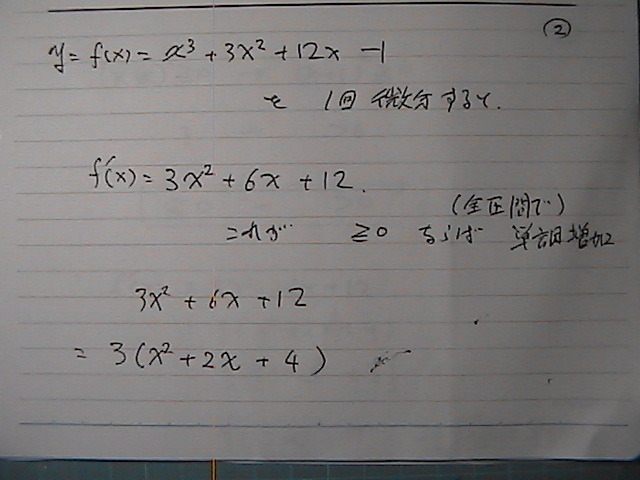 ②
y = f(x) = x³ + 3x² + 12x − 1
を 1回 微分すると.
f'(x) = 3x² + 6x + 12.
(全区間で)
これが ≧0 ならば 単調増加
3x² + 6x + 12
= 3(x² + 2x + 4)